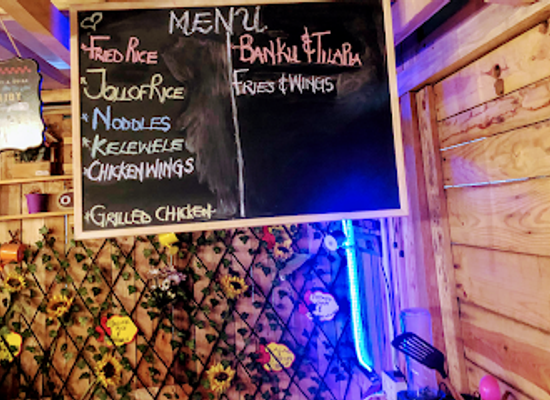 MENU
FRIED RICE
JOLLOF RICE
* NODDLES
* KELEWELE
* CHICKEN WINGS
* GRILLED CHICKEN
BANKU & TILAPIA
FRIES & WINGS